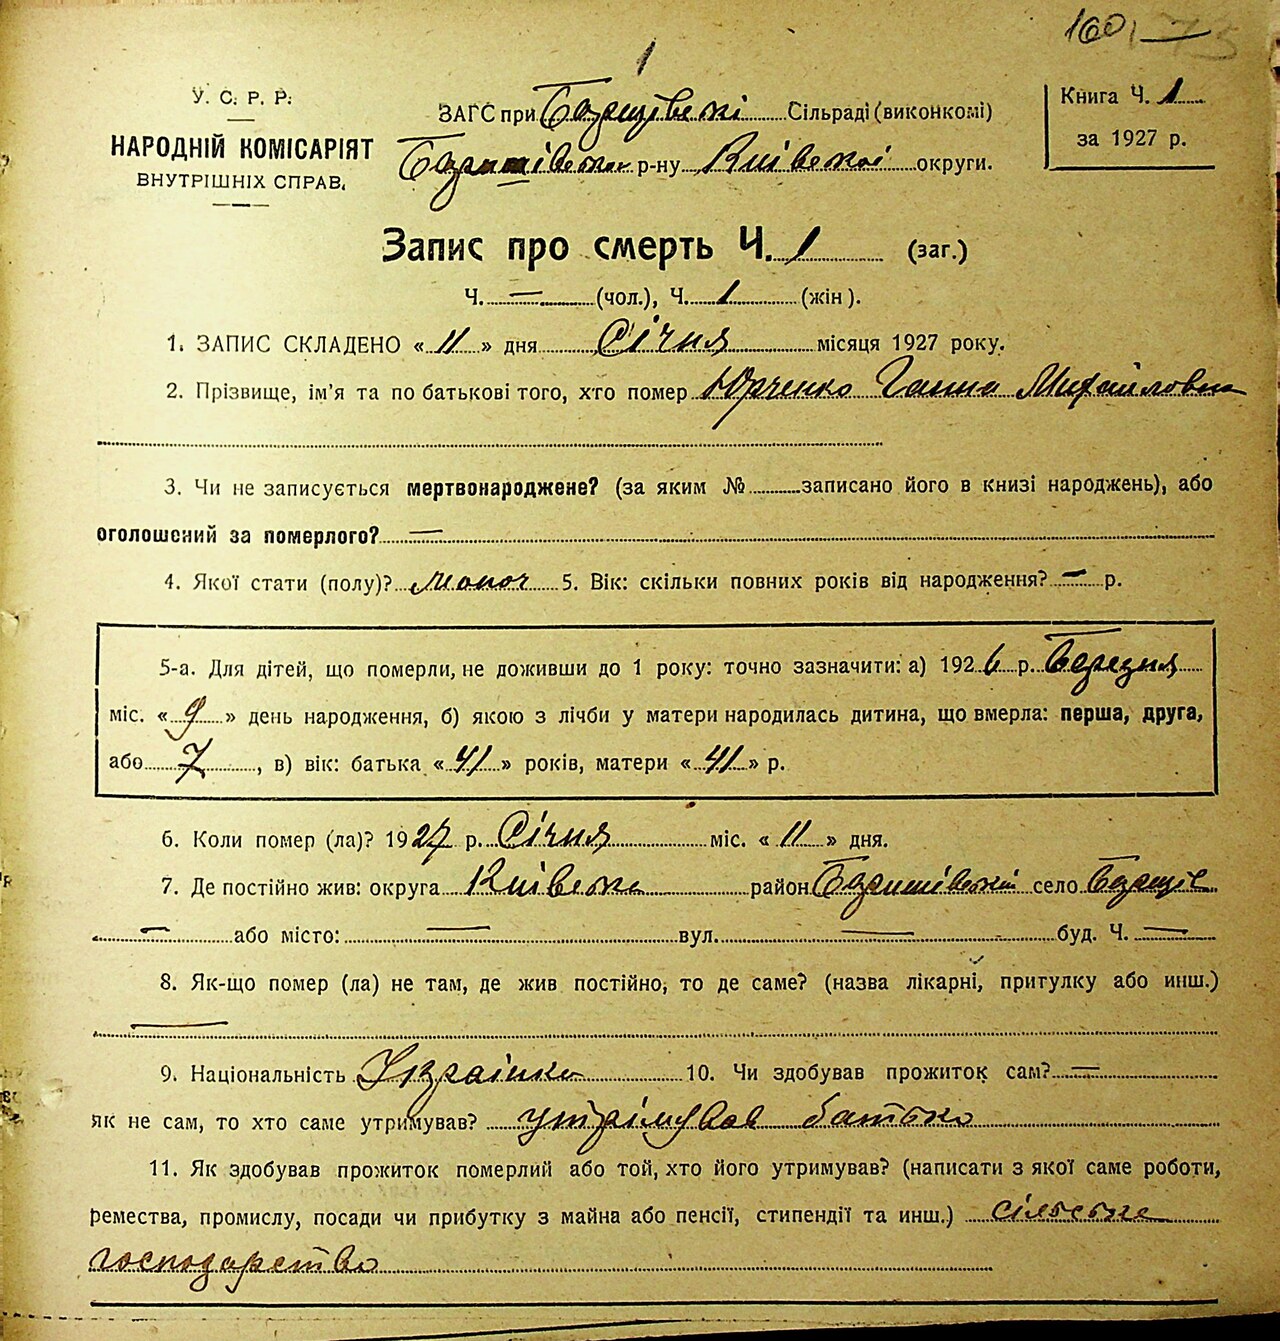 160
1
У. С. Р. Р.
НАРОДНІЙ КОМІСАРІЯТ
ВНУТРІШНІХ СПРАВ.
ЗАГС при Борщівські Сільраді (виконкомі)
р-ну Київської округи.
Книга Ч. 1
за 1927 р.
Запис про смерть Ч. 1 (заг.)
Ч. — (чол.), Ч. 1 (жін).
1. ЗАПИС СКЛАДЕНО « 11 » дня Січня місяця 1927 року.
2. Прізвище, ім'я та по батькові того, хто помер Юрченко Ганна Михайловна
3. Чи не записується мертвонароджене? (за яким № записано його в книзі народжень), або
оголошений за померлого? —
4. Якої стати (полу)? 5. Вік: скільки повних років від народження? — р.
5-а. Для дітей, що померли, не доживши до 1 року: точно зазначити: а) 1926 р. Березня
міс. « 9 » день народження, б) якою з лічби у матери народилась дитина, що вмерла: перша, друга,
або 7, в) вік: батька « 41 » років, матери « 41 » р.
6. Коли помер (ла)? 1927 р. Січня міс. « 11 » дня.
7. Де постійно жив: округа Київська район село Борщів
— або місто: — вул. — буд. Ч. —
8. Як-що помер (ла) не там, де жив постійно, то де саме? (назва лікарні, притулку або инш.)
—
9. Національність Українка 10. Чи здобував прожиток сам? —
як не сам, то хто саме утримував? утрімував батько
11. Як здобував прожиток померлий або той, хто його утримував? (написати з якої саме роботи,
ремества, промислу, посади чи прибутку з майна або пенсії, стипендії та инш.) сільське
господарство